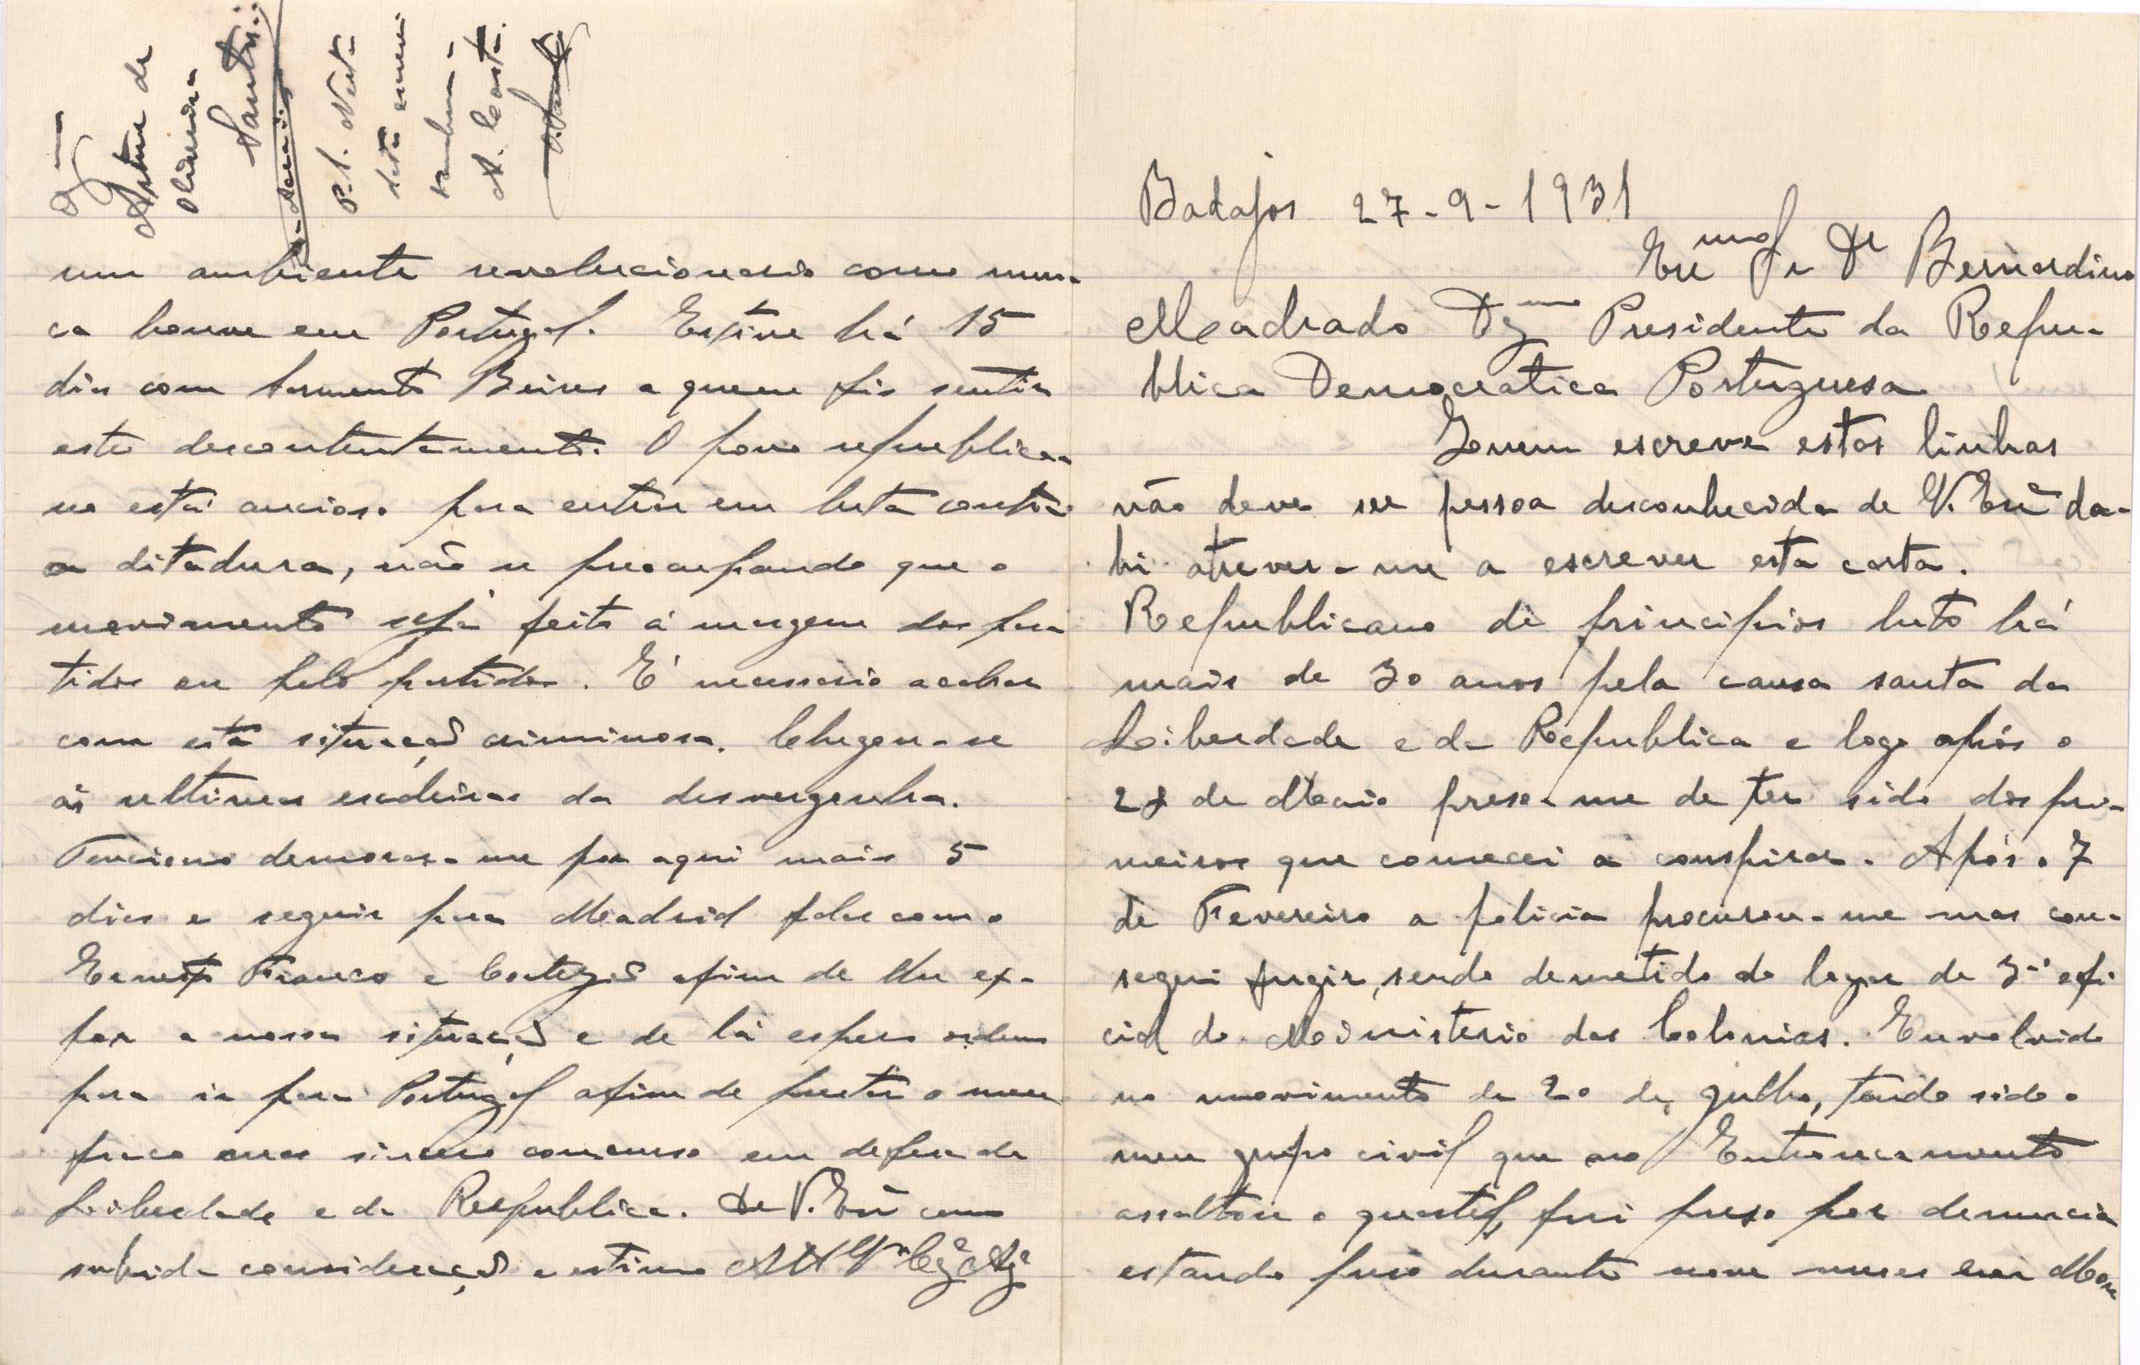 Badajos 27-9-1931
Exmo Sr Dr Bernardino
Machado Dgmo Presidente da Repu-
blica Democratica Portuguesa
Quem escreve estas linhas
não deve ser pessoa desconhecida de V. Exª da-
hi atrever-me a escrever esta carta.
Republicano de principios luto há
mais de 30 anos pela causa santa da
Liberdade e da Republica e logo após o
28 de Maio preso-me de ter sido dos pri-
meiros que comecei a conspirar. Após o 7
de Fevereiro a policia procurou-me mas con-
segui fugir, sendo demetido do logar de 3º ofi-
cial do Ministerio das Colonias. Envolvido
no movimento de 20 de Julho, tendo sido o
meu grupo civil que no Entroncamento
assaltou o quartel, fui preso por denuncia
estando preso durante nove meses em Mon
um ambiente revolucionario como nun-
ca houve em Portugal. Estive há 15
dias com Sarmento Beires a quem fis sentir
este descontentamento. O povo republica-
no está ancioso para entrar em luta contra
a ditadura, não se preocupando que o
movimento seja feito á margem dos par
tidos ou pelos partidos. É necessario acabar
com esta situação criminosa. Chegou-se
ás ultimas escadeiras da desvergonha.
Tenciono demorar-me por aqui mais 5
dias e seguir para Madrid falar com o
Ernesto Franco e Cortezão afim de lhe ex-
por a nossa situação e de lá espero ordens
para ir para Portugal afim de prestar o meu
fraco mas sincero concurso em defesa da
Liberdade e da Republica. De V. Exª com
subida consideração e estima
Artur de
Oliveira
Santos
P.S. Nesta
data escrevi
tambem a
A. Costa.
O. Santos